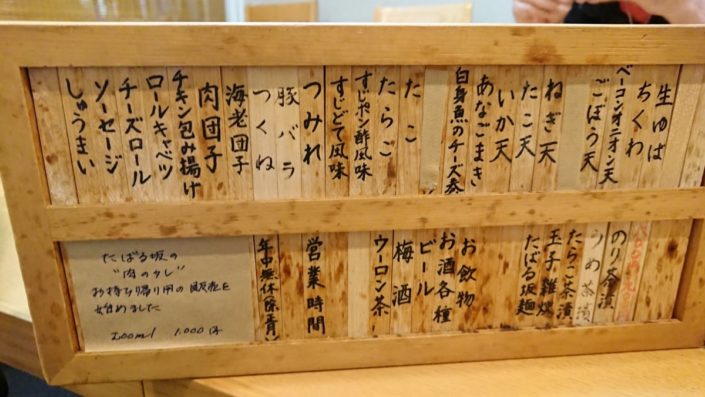 生ゆば
ちくわ
ベーコンオニオン天
ごぼう天
ねぎ天
たこ天
いか天
あなごまき
白身魚のチーズ巻
たこ
たらこ
すじポン酢風味
すじどて風味
つみれ
豚バラ
つくね
海老団子
肉団子
チキン包み揚げ
ロールキャベツ
チーズロール
ソーセージ
しゅうまい
のり茶漬
うめ茶漬
たらこ茶漬
玉子雑炊
たばる坂麺
お飲物
お酒各種
ビール
梅酒
ウーロン茶
営業時間
年中無休
たばる坂の
"肉のタレ"
お持ち帰り用の販売を
始めました
200ml 1.000円